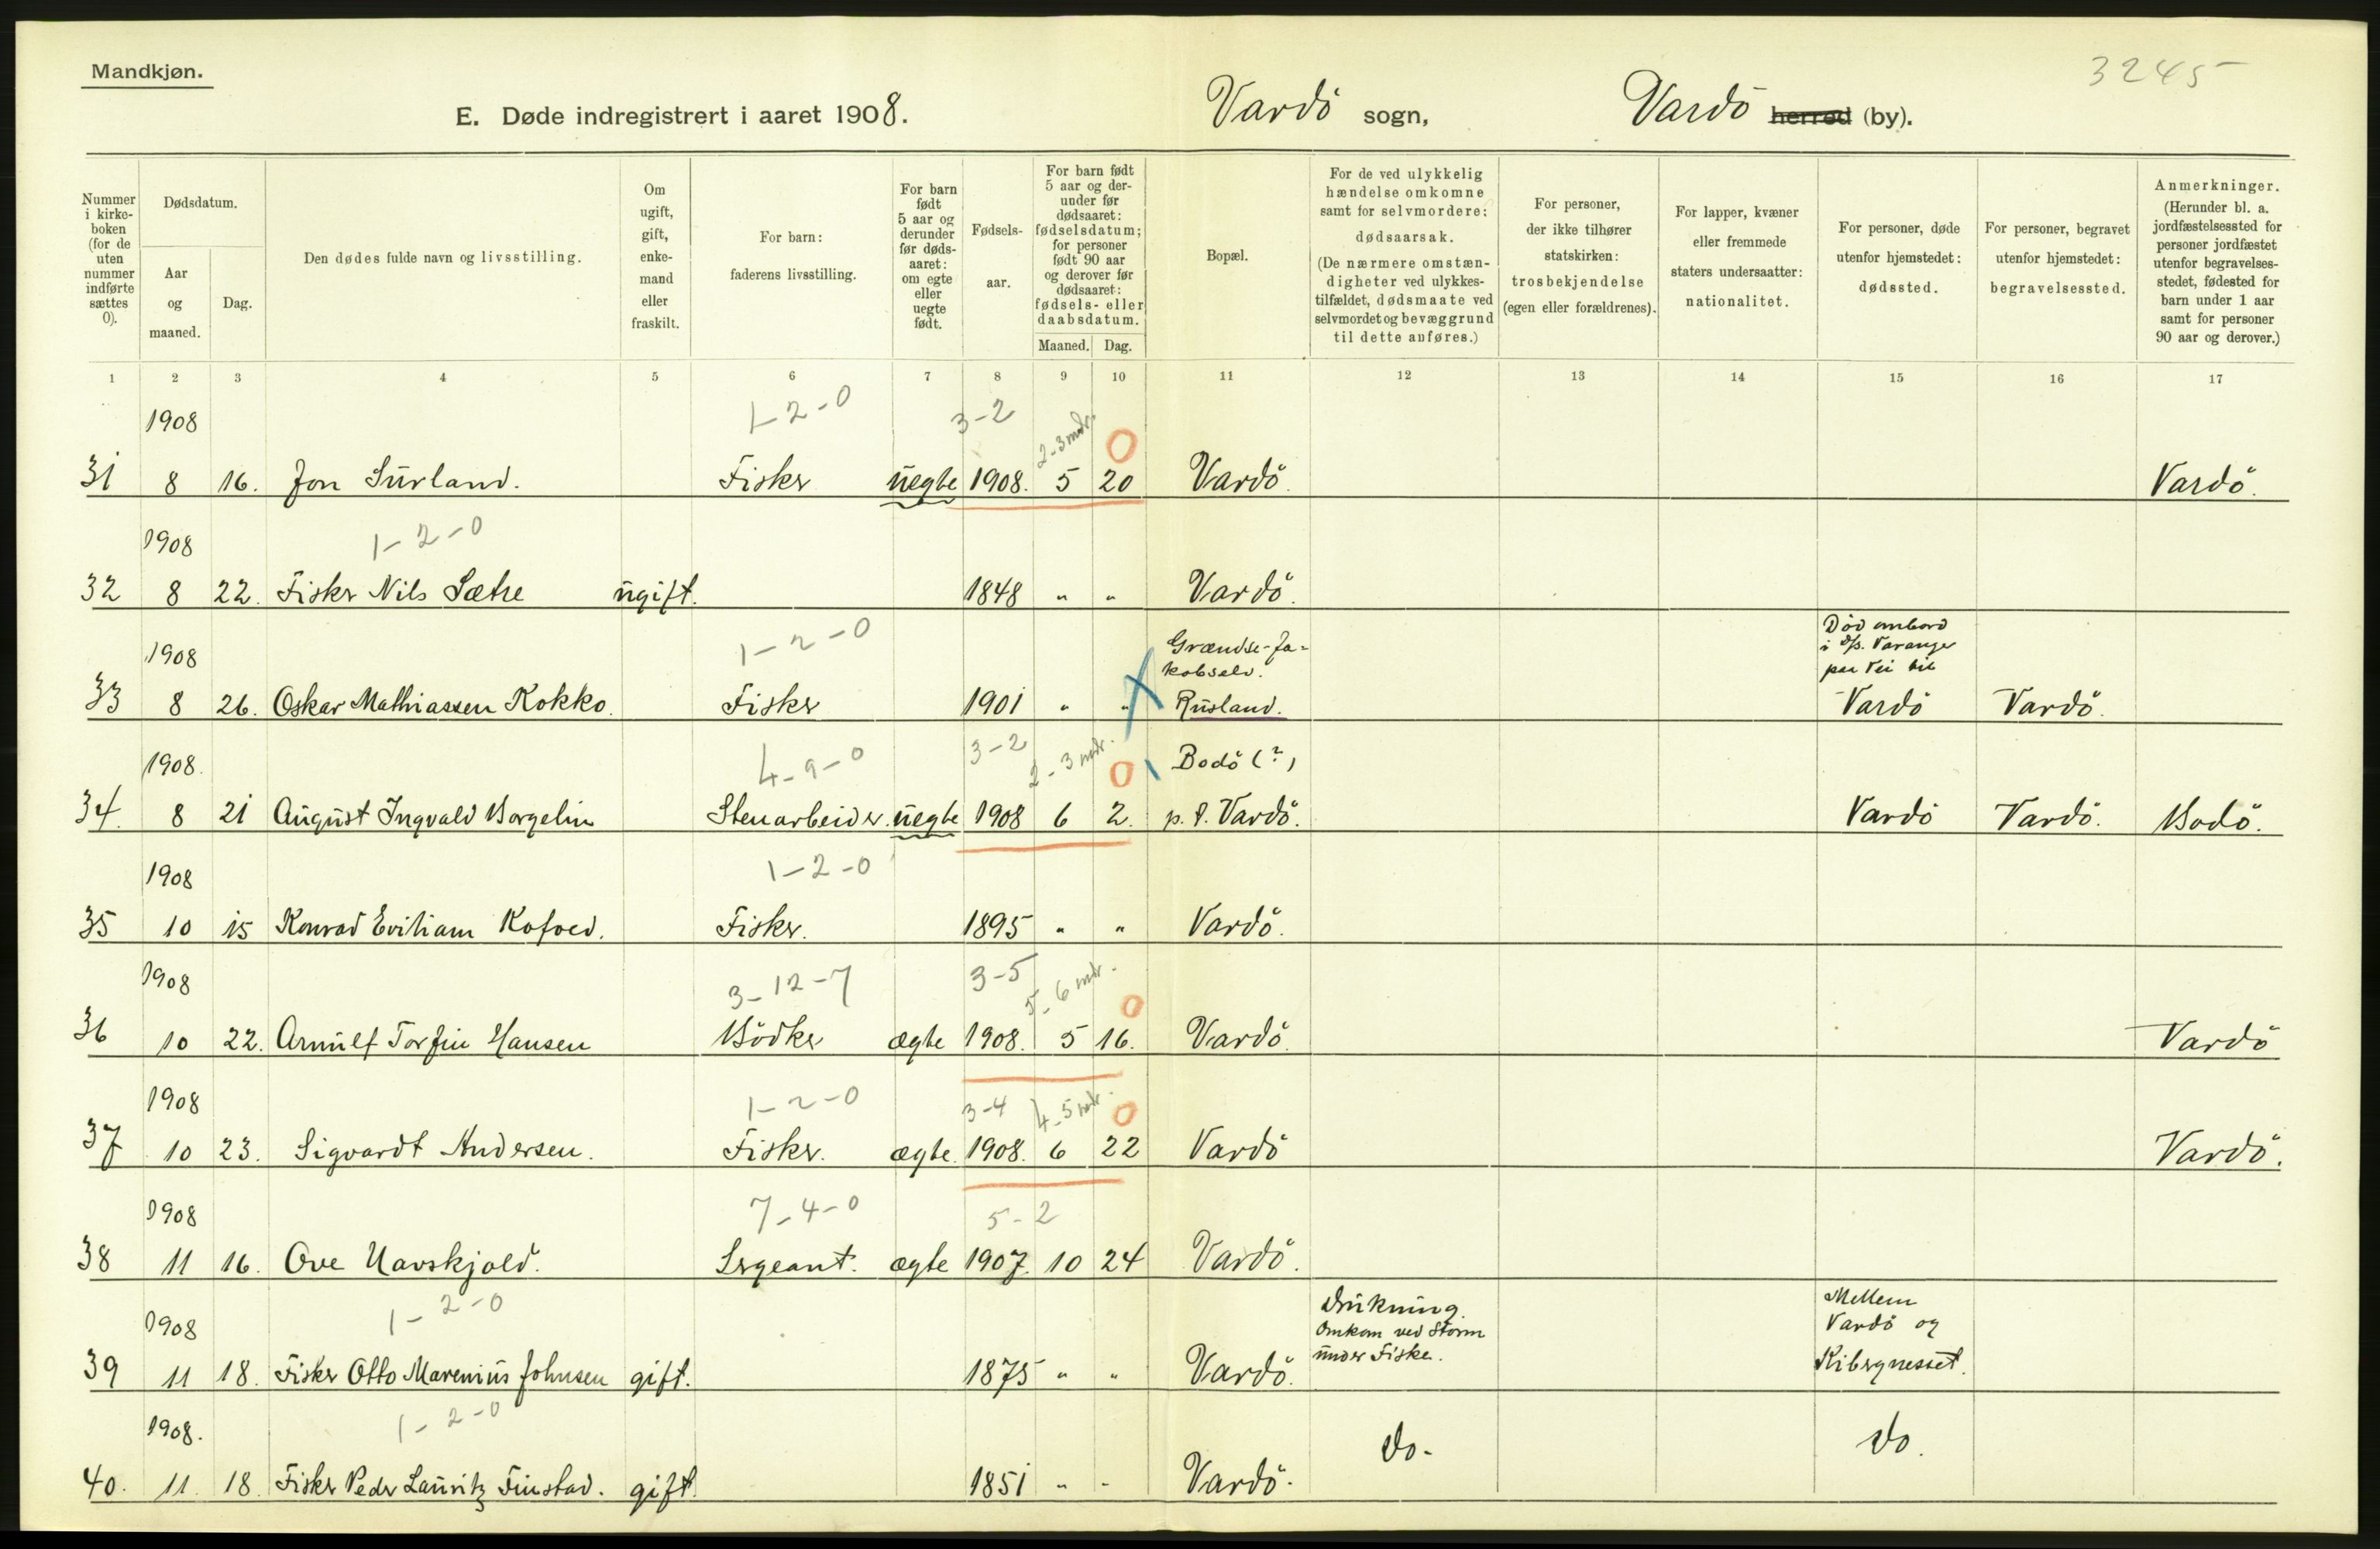 Mandkjøn.
3245
E. Døde indregistrert i aaret 1908.
Vardö sogn, Vardö herred (by).
Nummer i kirke-boken (for de uten nummer indførte sættes 0).
Dødsdatum.
Aar og maaned.
Dag.
Den dødes fulde navn og livsstilling.
Om ugift, gift, enke-mand eller fraskilt.
For barn: faderens livsstilling.
For barn født 5 aar og derunder før døds-aaret: om egte eller uegte født.
Fødsels-aar.
For barn født 5 aar og der-under før dødsaaret: fødselsdatum; for personer født 90 aar og derover før dødsaaret: fødsels- eller daabsdatum.
Maaned. Dag.
Bopæl.
For de ved ulykkelig hændelse omkomne samt for selvmordere: dødsaarsak. (De nærmere omstæn-digheter ved ulykkes-tilfældet, dødsmaate ved selvmordet og bevæggrund til dette anføres.)
For personer, der ikke tilhører statskirken: trosbekjendelse (egen eller forældrenes).
For lapper, kvæner eller fremmede staters undersaatter: nationalitet.
For personer, døde utenfor hjemstedet: dødssted.
For personer, begravet utenfor hjemstedet: begravelsessted.
Anmerkninger. (Herunder bl. a. jordfæstelsessted for personer jordfæstet utenfor begravelses-stedet, fødested for barn under 1 aar samt for personer 90 aar og derover.)
1 2 3 4 5 6 7 8 9 10 11 12 13 14 15 16 17
1908 1-2-0 3-2 2-3 mdr. 0
31 8 16. Jon Surland. Fisker uegte 1908. 5 20 Vardö. Vardö.
1908 1-2-0
32 8 22. Fisker Nils Sætre ugift. 1848 " " Vardö.
1908 1-2-0 Grændse-Ja-kobselv. Död ombord i D/S. Varanger paa Vei til
33 8 26. Oskar Mathiassen Kokko. Fisker 1901 " " Rusland. Vardö Vardö.
1908. 4-9-0 3-2 2-3 mdr. 0 Bodö (?)
34. 8 21 August Ingvald Borgelin Stenarbeider. uegte 1908 6 2. p. t. Vardö. Vardö Vardö. Bodö.
1908 1-2-0
35 10 15 Konrad Eviliam Kofoed. Fisker. 1895 " " Vardö.
1908 3-12-7 3-5 5-6 mdr. 0
36 10 22. Arnulf Torfin Hansen Bödker ægte 1908. 5 16. Vardö. Vardö
1908 1-2-0 3-4 4-5 mdr. 0
37 10 23. Sigvardt Andersen. Fisker. ægte. 1908. 6 22 Vardö Vardö.
1908 7-4-0 5-2
38 11 16. Ove Navskjold. Sergeant. ægte 1907. 10 24 Vardö.
1908 1-2-0 Drukning. Omkom ved Storm under Fiske. Mellem Vardö og
39 11 18. Fisker Otto Marenius Johnsen gift. 1875 " " Vardö. Kibergnesset.
1908. 1-2-0 do- do.
40. 11. 18. Fisker Peder Lauritz Finstad. gift. 1851 " - Vardö.